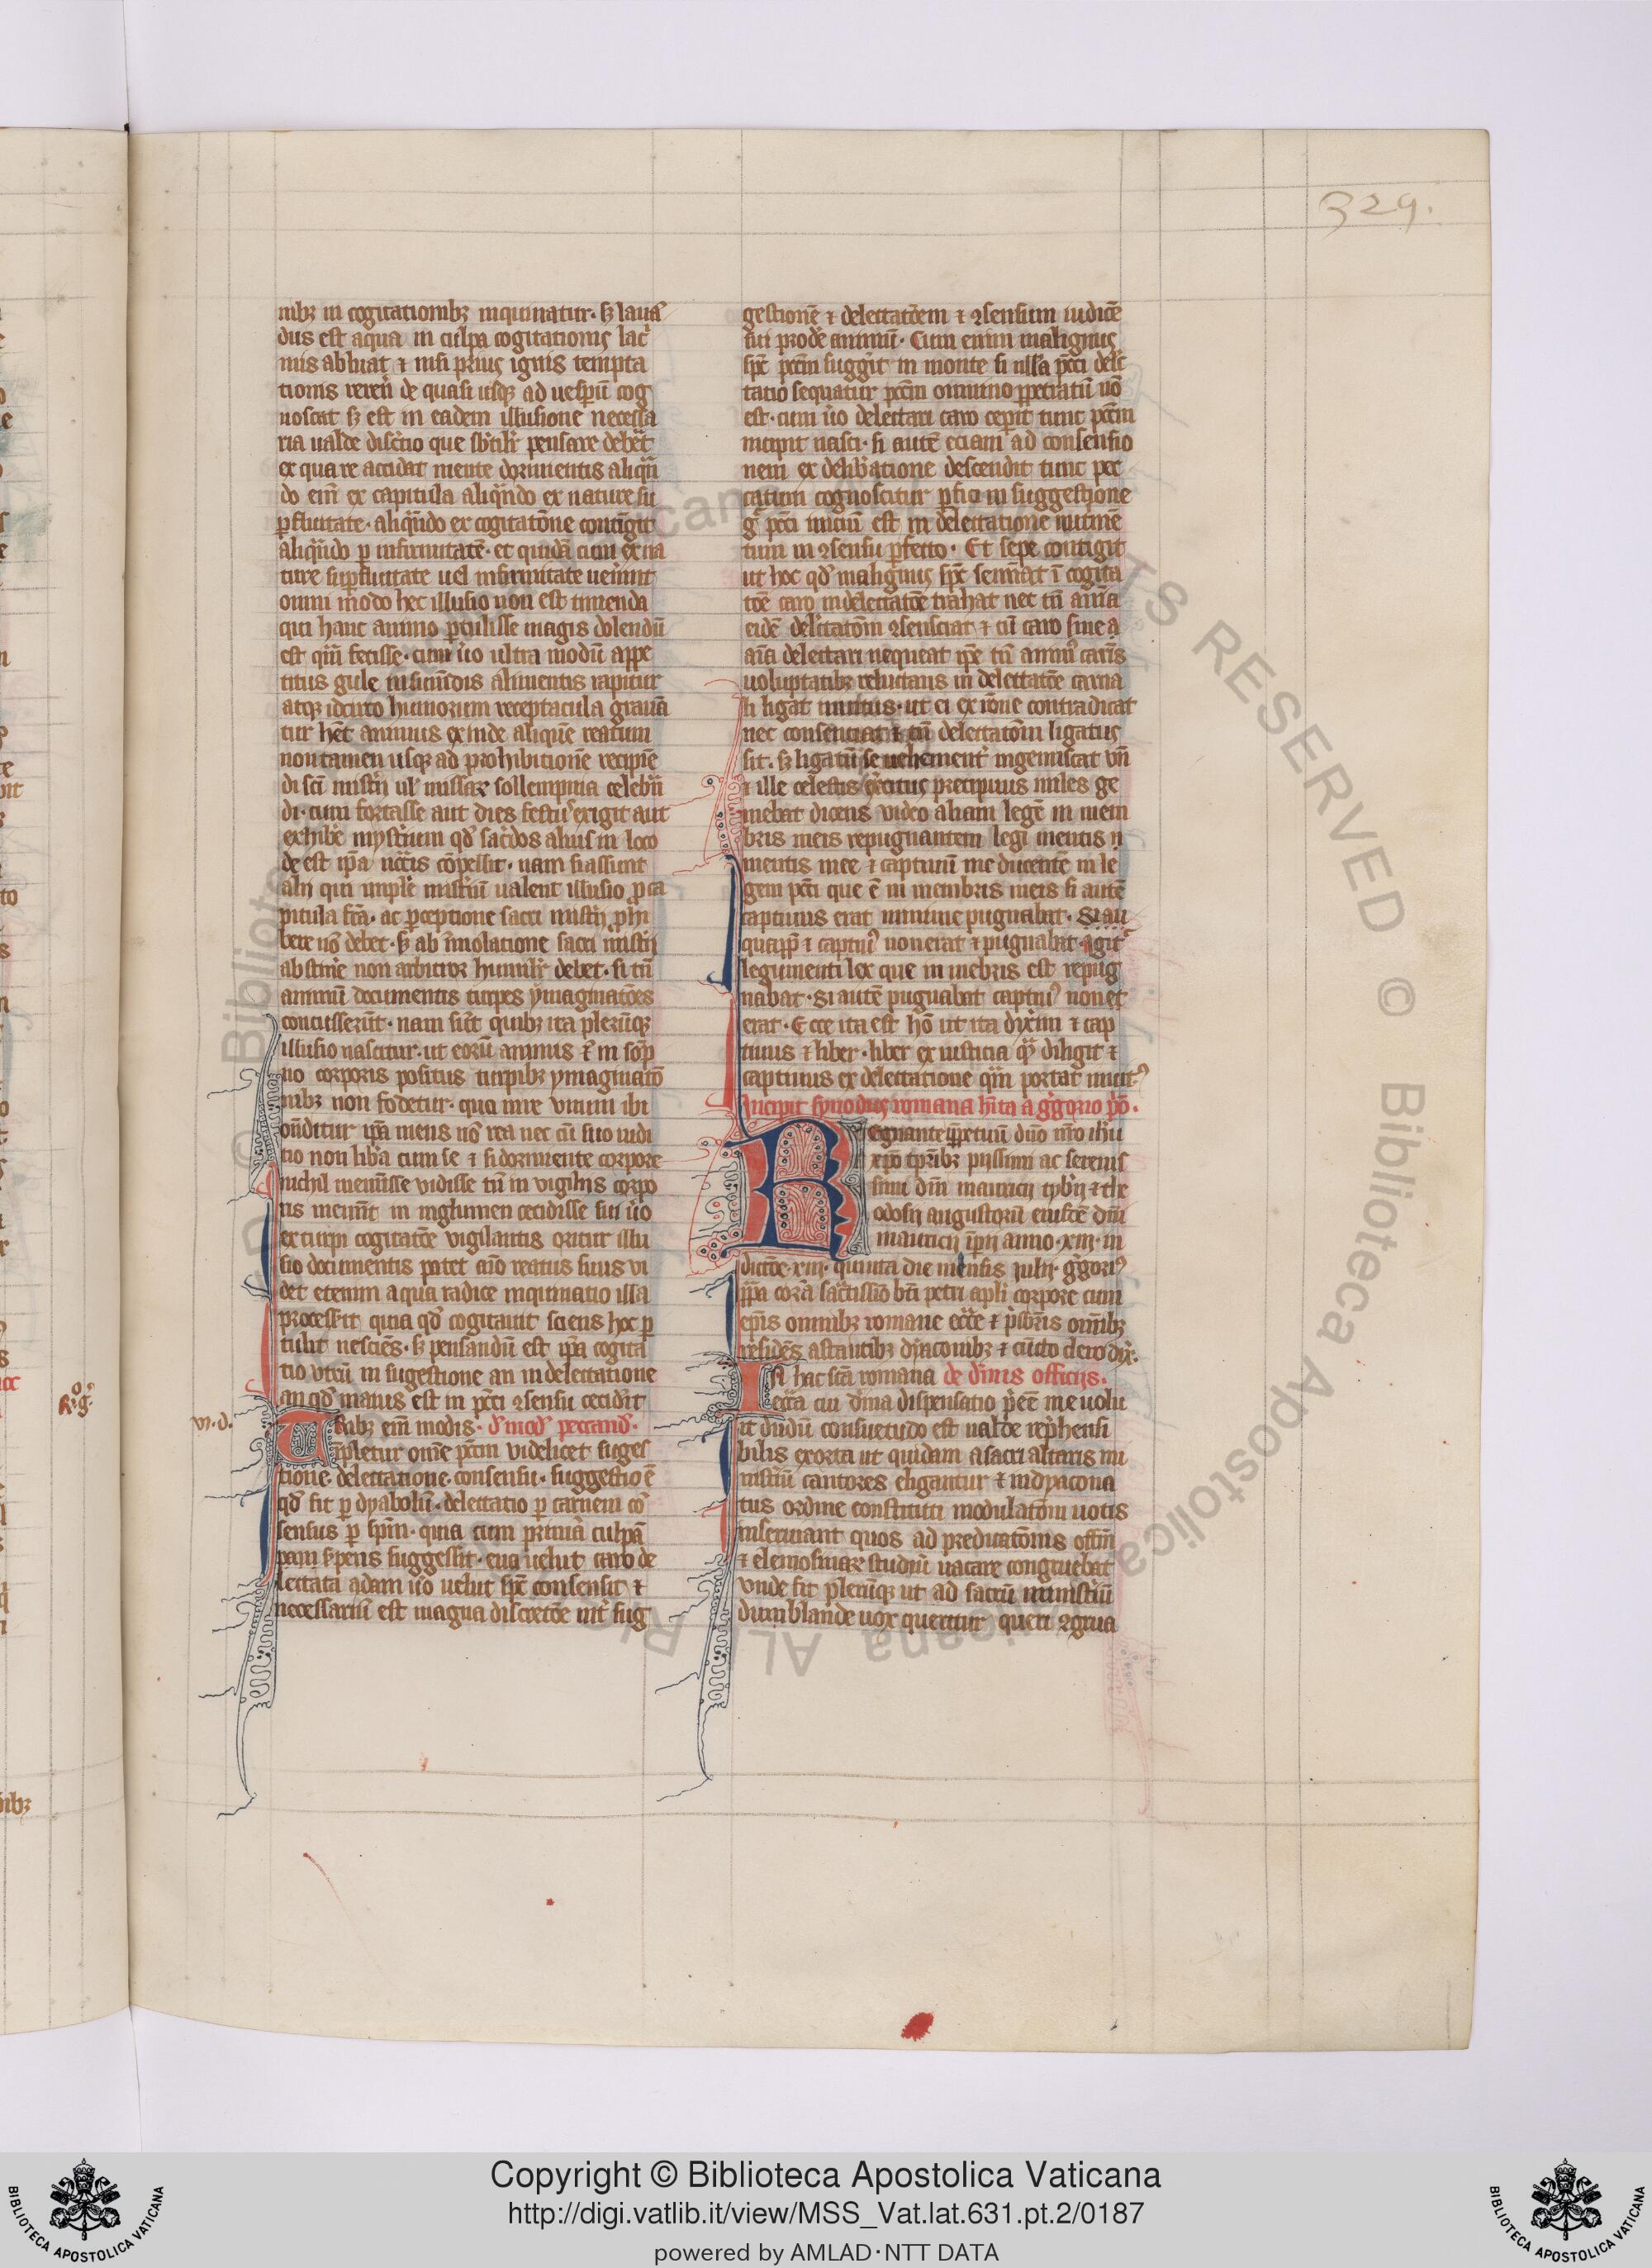 329.
nibꝫ in cogitationibꝫ inquinatur. sꝫ lauā
dus est aqua in culpa cogitationis lac̓
mis abluat ⁊ nisi prius ignis tempta
tionis reren̓ de quasi usqꝫ ad uesp̄um cog
noscat sꝫ est in eadem illusione necessa
ria ualde disc̓tio que sb̓tilit̓ pensare debet
ex qua re accidat mente dormientis aliqn̄
do em̄ ex crapitula aliqn̄do ex nature su
ꝑfluitate. aliqn̄do ex cogitatōne contīgit
aliqn̄do ꝑ infirmitatē. et quidā cum ex na
ture suꝑfluitate uel infirmitate uenerit
omni modo hec illusio non est timenda
qui hanc animo ꝑtulisse magis dolendū
est qm̄ fecisse. cum ūo ultra modū appe
titus gule in sumēdis alimentis rapitur
atqꝫ idcirco humorum receptacula grauā
tur hēt animus exinde aliquē reatum
non tamen usqꝫ ad prohibitionē recipiē
di sc̄i mist̓ij ul̓ missaꝝ sollempnia celebn̄
di. cum fortasse aut dies festus exigit aut
exhib̓e myst̓ium qd̓ sac̓dos alius in loco
de est ip̄a nccīs cōpellit. nam si assunt
alij qui imple̓ mist̓iū ualent illusio ꝓ cra
pitula fc̄a. ac ꝑceptione sacri mist̓ij ꝓhi
bere nō debet. sꝫ ab īmolatione sacri mist̓ij
abstin̓e non arbitror humilit̓ debet. si tn̄
animū documentis turpes ymaginatōes
concusserūt. nam sūt quibꝫ ita plerūqꝫ
illusio nascitur. ut eorū animus ē in sōp
no corporis positus turpibꝫ ymaginatō
nibꝫ non fodetur. qua in re unum ibi
on̄ditur ip̄a mens nō rea nec cū suo iudi
tio non lib̓a cum se ⁊ si dormiente corpore
nichil menūisse vidisse tn̄ in vigilijs corpo
ris menim̄t in inglumen cecidisse sui ūo
ex turpi cogitatōe vigilantis oritur illu
sio documentis patet aīo reatus suus vi
det etenim a qua radice inquinatio illa
processit quia qd̓ cogitauit sciens hoc ꝑ
tulit nesciēs. sꝫ pensandū est ip̄a cogita
tio utrū in sugestione an in delectatione
an qd̓ maius est in pccī ꝯsensu cecidit
vi. d.
Tribꝫ em̄ modis. d̓ mod̓ peccand̓.
impletur om̄e pcc̄m videlicet suges
tione. delectatione. consensu. suggestio ē
qd̓ fit ꝑ dyabolū. delectatio ꝑ carnem cō
sensus ꝑ sp̄m. quia cum primā culpā
pam s̓pens suggessit. eua uelut caro de
lectata adam ūo uelut sp̄c consensit ⁊
necessariū est magna discretōe int̓ sug
gestionē ⁊ delectatōem ⁊ ꝯsensum iudicē
sui prodē animū. Cum enim malignus
sp̄c pcc̄m sugg̓it in monte si nlla pccī delc̄
tatio sequatur pcc̄m omnino ꝑpetratū nō
est. cum ūo delectari caro cep̓it tunc pcc̄m
incipit nasci. si autē eciam ad consensio
nem ex delib̓atione descendit tunc pec
catum cognoscitur ꝑfici in suggestione
g̓ pccī iniciū est in delectatione nutm̄ē
tum in ꝯsensu ꝑfecto. Et sepe contigit
ut hoc qd̓ malignus sp̄c seminat ī cogita
tōe caro in delectatōe trahat nec tn̄ aīa
eidē delectatōni ꝯsenciat ⁊ cū caro sine a
aīa delectari nequeat ip̄e tn̄ animus carnis
uoluptatibꝫ reluctans in delectatōe carna
li ligat̓ inuitus. ut ei ex rōne contradicat
nec consentiat ⁊ tn̄ delectatōni ligatus
sit. sꝫ ligatū se uehement̓ ingemiscat vn̄
⁊ ille celestis ex̓citus precipuus miles ge
mebat dicens video aliam legē in mem
bris meis repugnantem legi mentis n
mentis mee ⁊ captiuū me ducentē in le
gem pccī que ē in membris meis si autē
captiuus erat minime pugnabat. Si au
quapp̄ ⁊ captiuus non erat ⁊ pugnabat. agit̓
legi menti lex que in mēbris est repug
nabat. Si autē pugnabat captiuus non et
erat. Ecce ita est hō ut ita dix̓im ⁊ cap
tiuus ⁊ liber. liber ex iusticia q̓m diligit ⁊
captiuus ex delectatione qm̄ portat inuit̓
Incipit synodus romana hīta a g̓gorio pp̄.
Regnante īꝑpetuū dn̄o nr̄o ihū
xp̄o tp̄ribꝫ piissimi ac serenis
simi dn̄i mauricij tyb̓ij ⁊ the
odosij augustorū eiusdē dn̄i
mauricij īpij anno. xiij. in
dictōe. xiij. quinta die mensis iulij. g̓gorius
pp̄a corā sac̄tissīo bt̄i petri apl̓i corpore cum
epīs omnibꝫ romane ecc̄e ⁊ p̓sbris om̄ibꝫ
residēs. astantibꝫ dyaconibꝫ ⁊ cūcto clero dix̓.
In hac scā romana de d̓inis officijs.
eccl̓ia cui d̓ina dispensatio p̓eē me uolu
it dudū consuetudo est ualde rep̓hensi
bilis exorta ut quidam a sacri altaris mi
nist̓iū cantores eligantur ⁊ in dyacona
tus ordine constituti modulatōni uotis
inseruiant quos ad predicatōnis offm̄
⁊ elemosinaꝝ studiū uacare congruebat
vnde fit plerūqꝫ ut ad sacrū minist̓iū
dum blande uox queritur queri ꝯgrua
Copyright © Biblioteca Apostolica Vaticana
http://digi.vatlib.it/view/MSS_Vat.lat.631.pt.2/0187
powered by AMLAD·NTT DATA
BIBLIOTECA APOSTOLICA VATICANA
BIBLIOTECA APOSTOLICA VATICANA